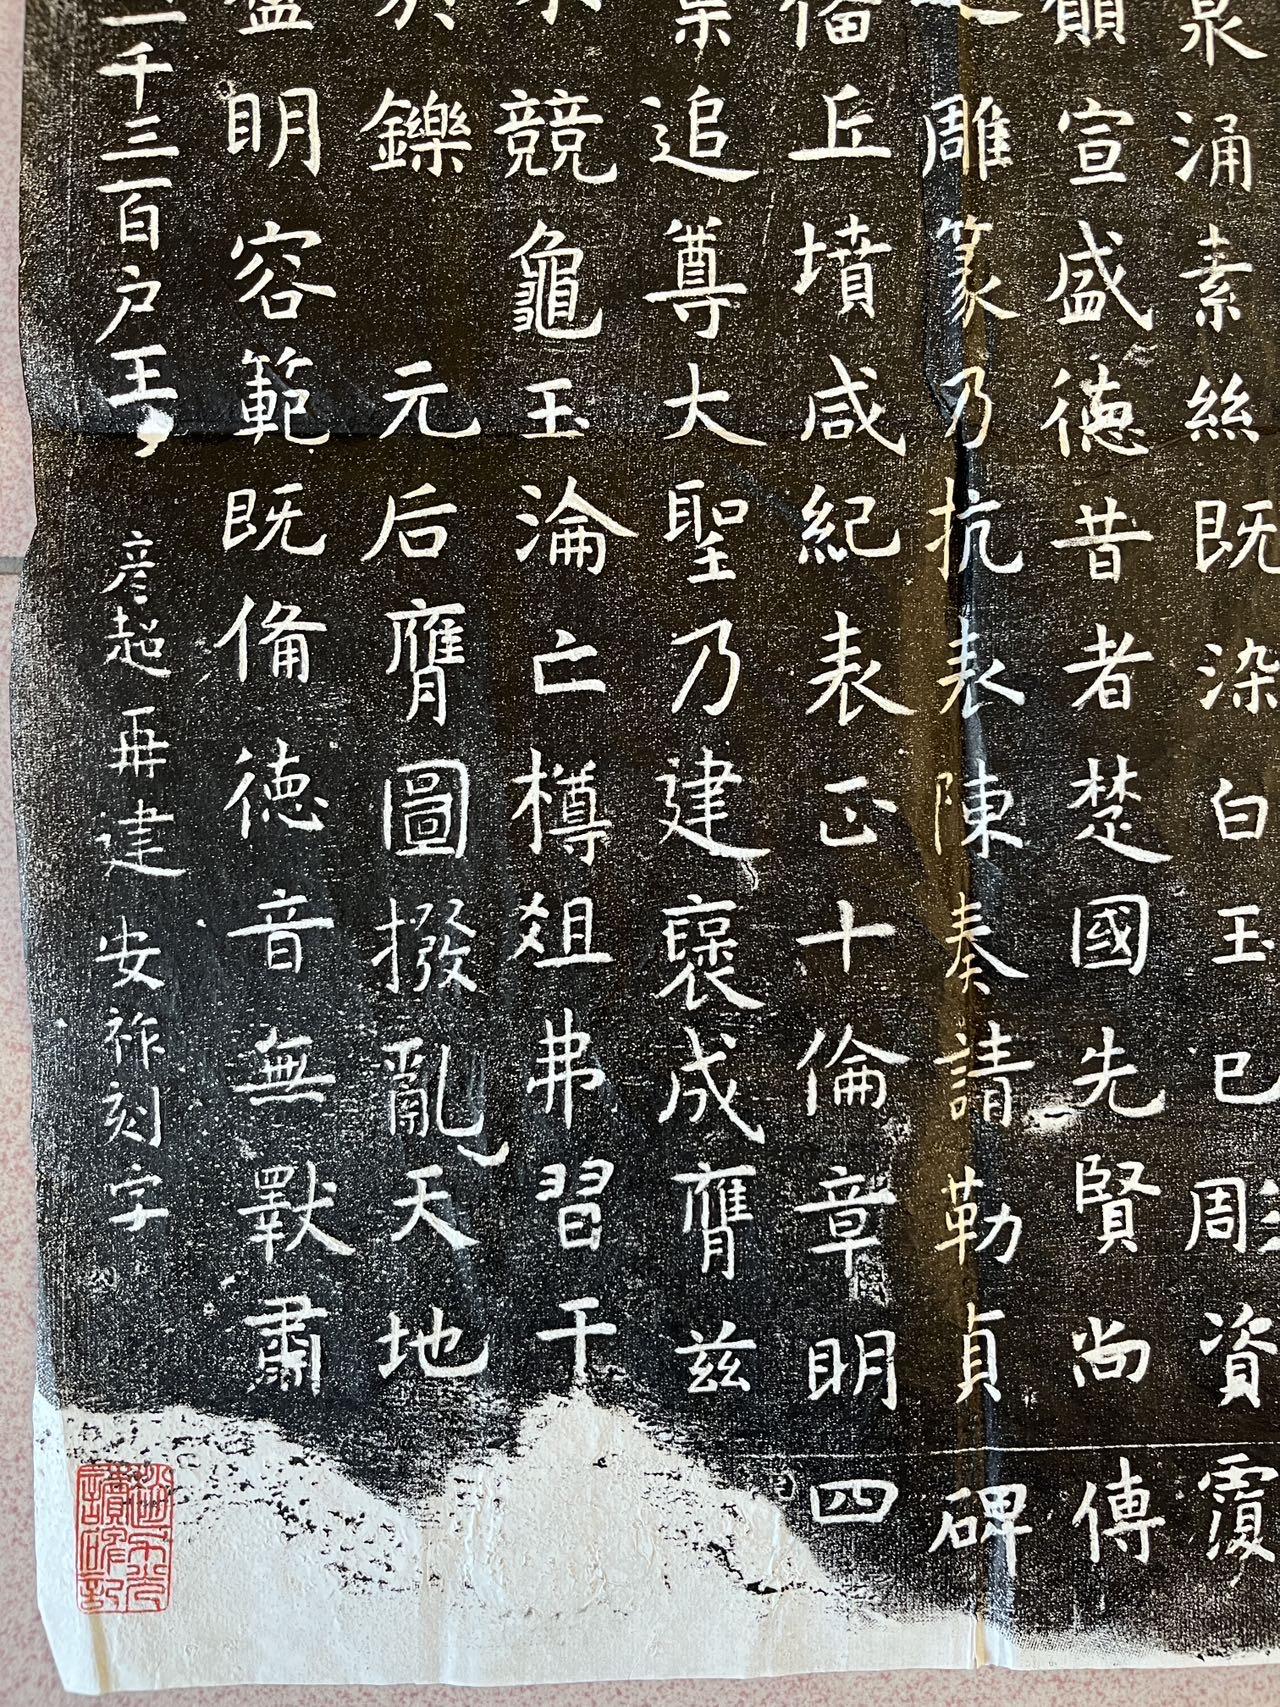 泉涌素絲既染白玉已周資覆
宣盛德昔者楚國先賢尚傳
雕篆乃抗表陳奏請勒貞碑
丘墳咸紀表正十倫章明四
追尊大聖乃建褒成膺兹
競龜玉淪亡樽俎弗習干
鑠元后膺圖撥亂天地
盈明容範既備德音無斁肅
千三百户王彦超再建安祚刻字